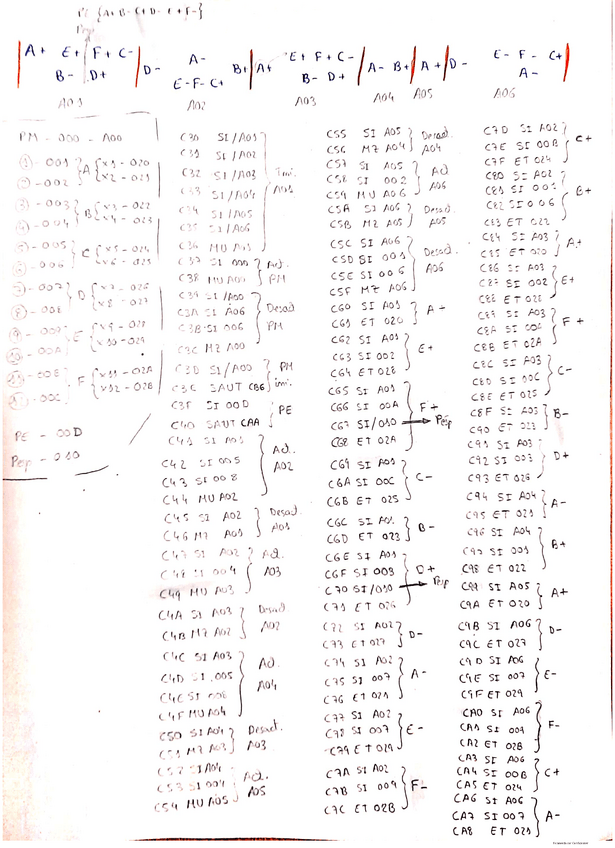 PE {A+ B- C+ D- E+ F-}
Pesp
A+ E+ F+ C-
B- D+
D-
A-
E- F- C+
B+
A+
E+ F+ C-
B- D+
A- B+
A+
D-
E- F- C+
A-
A01 A02 A03 A04 A05 A06
PM - 000 - A00
1 - 001
2 - 002
A
x1 - 020
x2 - 021
3 - 003
4 - 004
B
x3 - 022
x4 - 023
5 - 005
6 - 006
C
x5 - 024
x6 - 025
7 - 007
8 - 008
D
x7 - 026
x8 - 027
9 - 009
10 - 00A
E
x9 - 028
x10 - 029
11 - 00B
12 - 00C
F
x11 - 02A
x12 - 02B
PE - 00D
Pesp - 010
C30 SI/A01
C31 SI/A02
C32 SI/A03
C33 SI/A04
C34 SI/A05
C35 SI/A06
C36 MU A01
Ini.
A01
C37 SI 000
C38 MU A00
Act.
PM
C39 SI/A00
C3A SI A06
C3B SI 006
C3C MZ A00
Desact
PM
C3B SI/A00
C3C SAUT CB6
PM
ini.
C3F SI 00D
C40 SAUT CAA
PE
C41 SI A01
C42 SI 005
C43 SI 008
C44 MU A02
Act.
A02
C45 SI A02
C46 MZ A01
Desact.
A01
C47 SI A02
C48 SI 004
C49 MU A03
Act.
A03
C4A SI A03
C4B MZ A02
Desact.
A02
C4C SI A03
C4D SI 005
C4E SI 008
C4F MU A04
Act.
A04
C50 SI A04
C51 MZ A03
Desact.
A03
C52 SI A04
C53 SI 004
C54 MU A05
Act.
A05
C55 SI A05
C56 MZ A04
Desact.
A04
C57 SI A05
C58 SI 002
C59 MU A06
Act.
A06
C5A SI A06
C5B MZ A05
Desact.
A05
C5C SI A06
C5D SI 001
C5E SI 006
C5F MZ A06
Desact.
A06
C60 SI A01
C61 ET 020
A+
C62 SI A01
C63 SI 002
C64 ET 028
E+
C65 SI A01
C66 SI 00A
C67 SI/010
C68 ET 02A
F+
Pesp
C69 SI A01
C6A SI 00C
C6B ET 025
C-
C6C SI A01
C6D ET 023
B-
C6E SI A01
C6F SI 003
C70 SI/010
C71 ET 026
D+
Pesp
C72 SI A02
C73 ET 027
D-
C74 SI A02
C75 SI 007
C76 ET 021
A-
C77 SI A02
C78 SI 007
C79 ET 029
E-
C7A SI A02
C7B SI 009
C7C ET 02B
F-
C7D SI A02
C7E SI 00B
C7F ET 024
C+
C80 SI A02
C81 SI 001
C82 SI 006
C83 ET 022
B+
C84 SI A03
C85 ET 020
A+
C86 SI A03
C87 SI 002
C88 ET 028
E+
C89 SI A03
C8A SI 00A
C8B ET 02A
F+
C8C SI A03
C8D SI 00C
C8E ET 025
C-
C8F SI A03
C90 ET 023
B-
C91 SI A03
C92 SI 003
C93 ET 026
D+
C94 SI A04
C95 ET 021
A-
C96 SI A04
C97 SI 001
C98 ET 022
B+
C99 SI A05
C9A ET 020
A+
C9B SI A06
C9C ET 027
D-
C9D SI A06
C9E SI 007
C9F ET 029
E-
CA0 SI A06
CA1 SI 009
CA2 ET 02B
F-
CA3 SI A06
CA4 SI 00B
CA5 ET 024
C+
CA6 SI A06
CA7 SI 007
CA8 ET 021
A-